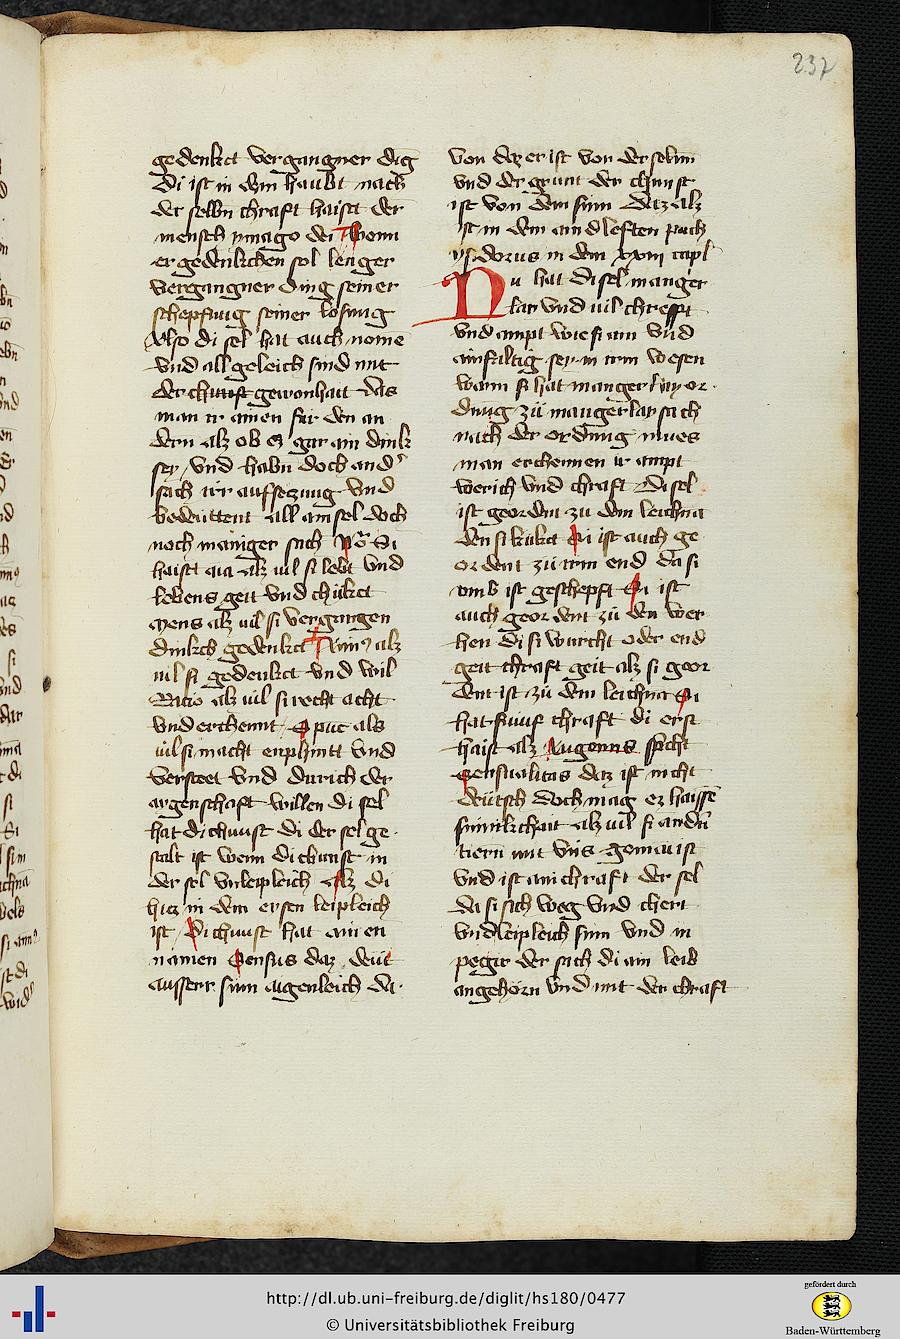 237
gedenkct vergangner ding
Di ist in dem haubt nach
der selbn chraft haist der
mensch ymago dei Wenn
er gedenkchen sol lenger
vergangner ding seiner
schepfung seiner losung
Also di sel hat auch nome
vnd all geleich sind mit
der chunst gewonhait das
man ir ainen für den an
dern alz ob es gar ain dink
sey vnd habn doch and
sach irr aufseczung vnd
bedeuttent all ain sel doch
noch maniger sach Si
haist aia alz uil si lebt vnd
lebens geit vnd chükct
mens alz uil si vergangen
dinkch gedenkct alz
uil si gedenkct vnd wil
Racio alz uil si recht acht
vnd erchennt Spūc als
uil si macht enphintt vnd
versteet vnd durich der
aygenschaft willen di sel
hat di chunst di der sel ge
stalt ist wenn di chunst in
der sel vnleipleich Alz di
hicz in dem ersen leipleich
ist Di chunst hat ain en
namen Sensus daz deut
ausserr sinn aigenleich da
von daz er ist von der selnn
vnd der grunt der chunst
ist von dem sinn Daz alz
ist in dem aindleften puch
ysidorus in dem xxiii capl
Nu hat di sel manger
lay vnd uil chrefft
vnd ampt wie si ain vnd
ainfaltig sey in irm wesen
wann si hat manger lay or
dnung zü mangerlay sach
nach der ordnung mues
man erchennen ir ampt
werich vnd chraft Di sel
ist geordent zu dem leichna
den si kükct Si ist auch ge
ordent zü irm end da si
vmb ist geschepft Si ist
auch geordent zü den wer
hen di si wurcht oder end
geit chraft geit alz si geor
dent ist zü dem leichna Si
hat fünf chraft di erst
haist alz Augenus spricht
Sensualitas daz ist nicht
deütsch doch mag ez haissē
sinnlichait alz uil si andn
tiern mit vns gemain ist
vnd ist ain chraft der sel
da si sich weg vnd chert
vnd leipleich sinn vnd in
pegir der sach di ain leib
angehörn vnd mit der chraft
http://dl.ub.uni-freiburg.de/diglit/hs180/0477
© Universitätsbibliothek Freiburg
gefördert durch
Baden-Württemberg